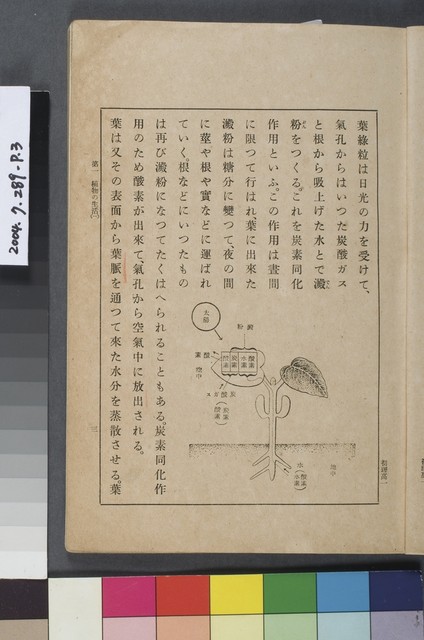 葉綠粒は日光の力を受けて、
氣孔からはいつた炭酸ガス
と根から吸上げた水とで澱
粉をつくる。これを炭素同化
作用といふ。この作用は晝間
に限つて行はれ、葉に出來た
澱粉は糖分に變つて、夜の間
に莖や根や實などに運ばれ
ていく。根などにいつたもの
は再び澱粉になつてたくはへられることもある。炭素同化作
用のため酸素が出來て、氣孔から空氣中に放出される。
葉は又その表面から葉脈を通つて來た水分を蒸散させる。葉
太陽
澱粉
酸素
炭素
水素
酸素
酸素
空中
炭酸ガス
(炭素
酸素)
水
(酸素
水素)
地中
第一 植物の生活(一)
三
2004.7.289-P.3